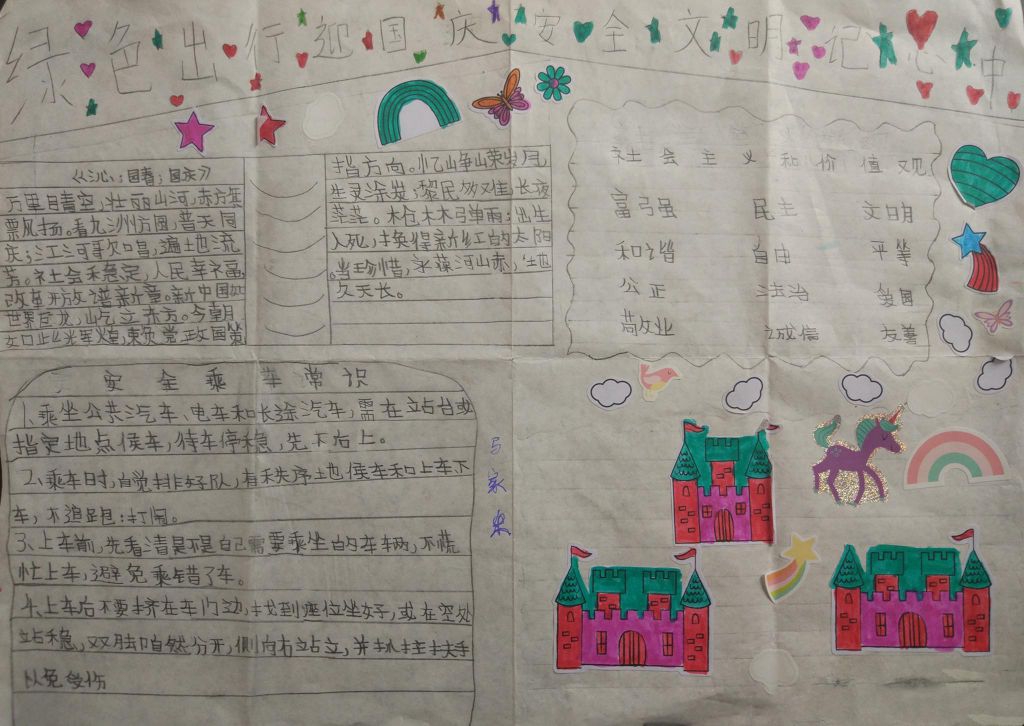 绿色出行迎国庆安全文明记心中
《沁心园春;国庆》
万里目青空,壮丽山河,赤方年
票风扬。看九洲方圆,普天同
庆;江河哥欠唱,遍地流
芳。社会禾稳定,人民幸福,
改革开放谱新章。新中国如
世界巨龙,屹立东方。今朝
女口此光军煌,束党政国策
指方向。忆峥山荣岁月,
生灵涂炭;黎民坎难,长夜
茫茫。木仓木木弓单雨;出生
入死,换得新红的太阳
。当珍惜,永葆河山赤,地
久天长。
社会主义和价值观
富强 民主 文明
和谐 自由 平等
公正 法治 爱国
敬业 诚信 友善
安全乘车常识
1、乘坐公共汽车、电车和长途汽车,需在站台或
指定地点候车,待车停稳,先下后上。
2、乘车时,自觉排好队,有秩序地候车和上车下
车,不追跑;打闹。
3、上车前,先看清是不是自己需要乘坐的车辆,不慌
忙上车,避免乘错了车。
4、上车后不要挤在车门边,找到座位坐好,或在空处
站稳,双脚自然分开,侧向右站立,并抓住扶手
以免受伤
马家